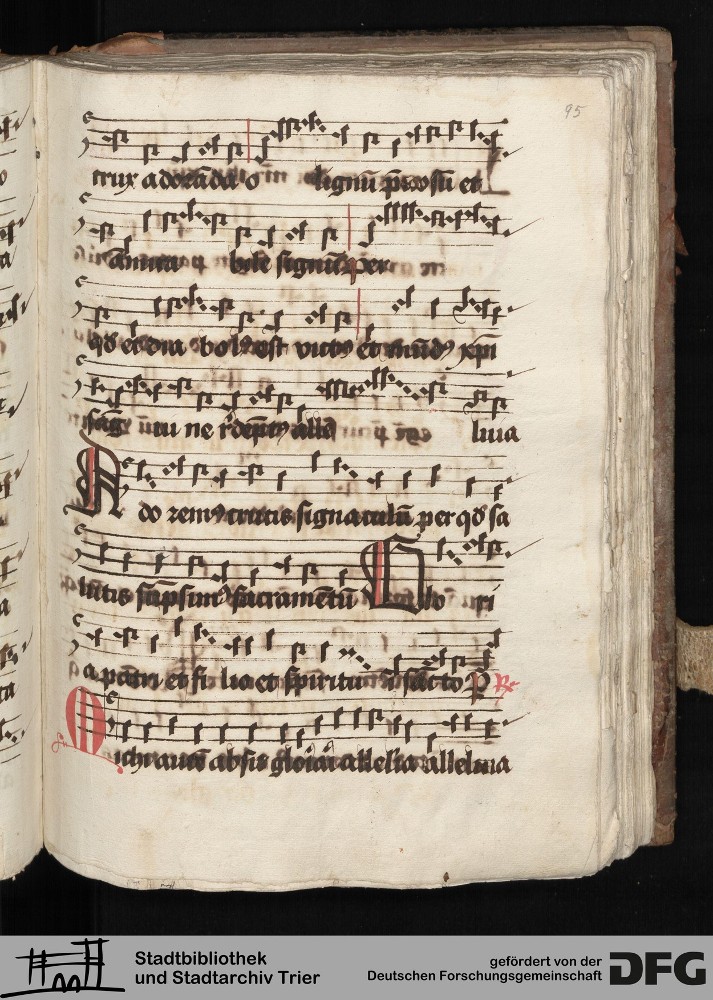 95
crux adoranda o lignū p̄ciosū et
āmira bile signū per
qd̄ et dia bolꝰ est victꝰ et mūdꝰ xp̄i
sāg uīnī ne r̄dēptꝰ alle luia
Ado remꝰ crucis signaculū per qd̄ sa
lutis sūpsimꝰ sacramētū Glo ri
a patri et fi lio et spiritui sācto P R
Michi autē absit gloiari allelīa alleluia
Stadtbibliothek
und Stadtarchiv Trier
gefördert von der
Deutschen Forschungsgemeinschaft
DFG